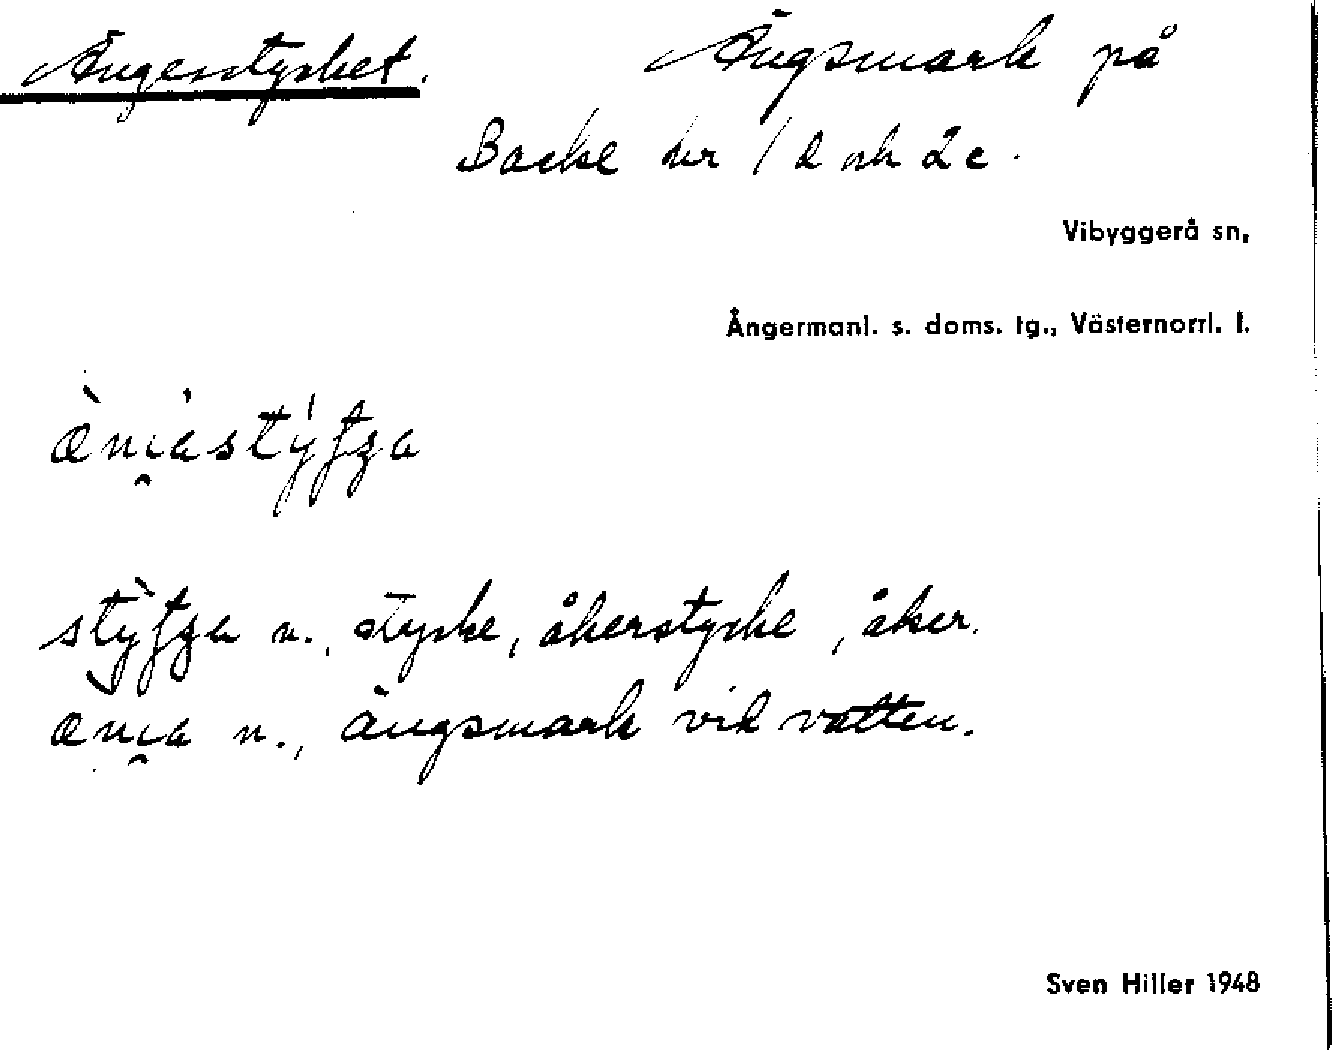 Ängesstycket. Ängsmark på
Backe nr 1d och 2c.
Vibyggerå sn,
Ångermanl. s. doms. tg., Västernorrl. l.
n., stycke, åkerstycke, åker.
n., ängsmark vid vatten.
Sven Hiller 1948